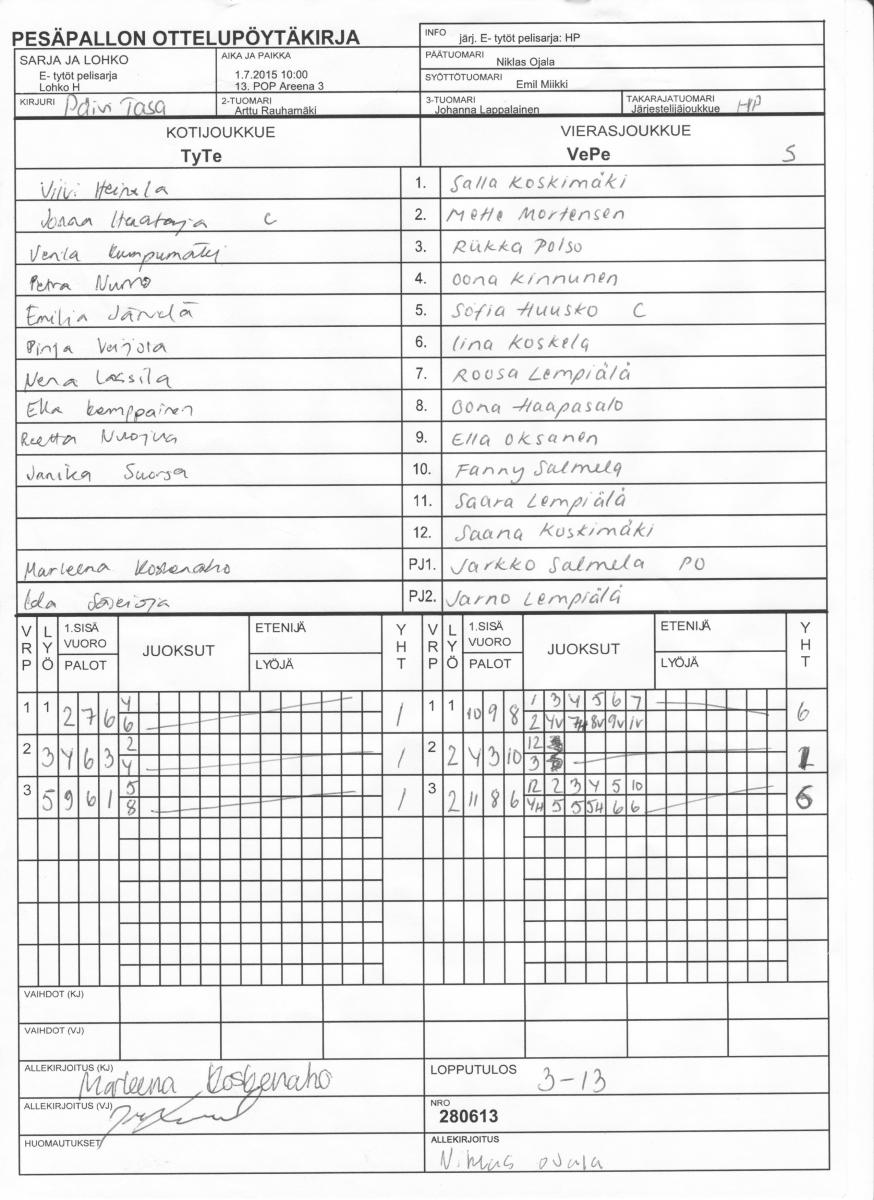 PESÄPALLON OTTELUPÖYTÄKIRJA
INFO järj. E- tytöt pelisarja: HP
SARJA JA LOHKO
E- tytöt pelisarja
Lohko H
AIKA JA PAIKKA
1.7.2015 10:00
13. POP Areena 3
PÄÄTUOMARI Niklas Ojala
SYÖTTÖTUOMARI Emil Miikki
KIRJURI Päivi Tasa
2-TUOMARI Arttu Rauhamäki
3-TUOMARI Johanna Lappalainen
TAKARAJATUOMARI Järjestelijäjoukkue HP
KOTIJOUKKUE
TyTe
VIERASJOUKKUE
VePe S
Viivi Heinela 1. Salla Koskimäki
C 2. Mette Mortensen
Venla 3. Riikka Polso
Petra Nurro 4. Oona Kinnunen
Emilia Järvelä 5. Sofia Huusko C
Pinja 6. Iina Koskela
Nena Lassila 7. Roosa Lempiälä
Ella Kemppainen 8. Oona Haapasalo
Reetta Nuojua 9. Ella Oksanen
Janika Suorsa 10. Fanny Salmela
11. Saara Lempiälä
12. Saana Koskimäki
Marleena Koskenaho PJ1. Jarkko Salmela PO
PJ2. Jarno Lempiälä
VRP LYÖ 1.SISÄ VUORO PALOT JUOKSUT ETENIJÄ LYÖJÄ YHT VRP LYÖ 1.SISÄ VUORO PALOT JUOKSUT ETENIJÄ LYÖJÄ YHT
1 1 2 7 6 4 1 1 1 10 9 8 1 3 4 5 6 7 6
6 2 4V 7H 8V 9V 1V
2 3 4 6 3 2 1 2 2 4 3 10 12 1
4 3
3 5 9 6 1 5 1 3 2 11 8 6 12 2 3 4 5 10 6
8 4H 5 5 5H 6 6
VAIHDOT (KJ)
VAIHDOT (VJ)
ALLEKIRJOITUS (KJ) Marleena Koskenaho
LOPPUTULOS 3-13
ALLEKIRJOITUS (VJ)
NRO
280613
HUOMAUTUKSET
ALLEKIRJOITUS
Niklas Ojala